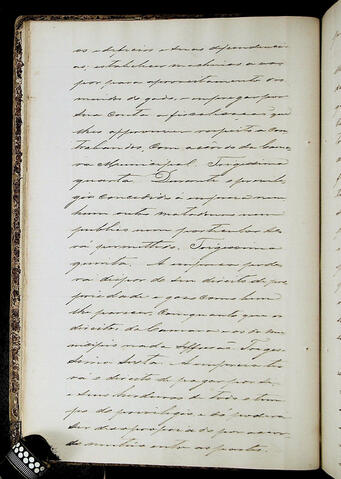 os edificios e suas dependenci-
as, estabelecer machinas a va-
por para aproveitamento dos
miudos do gado, e empregar por
sua conta a fiscalisação que
lhes approuver respeito a con-
trabandos, com acôrdo da Cama-
ra Municipal. Trigesima
quarta. Durante o privile-
gio concedido á empreza ne-
nhum outro matadouro nem
publico nem particular se-
rá permittido. Trigesima
quinta. A empreza pode-
rá dispor do seu direito de pro-
priedade e goso como bem
lhe parecer, comquanto que os
direitos da Camara e os do mu-
nicipio nada soffrerão. Trige-
sima sexta. A empreza te-
rá o direito de pagar por si
e seus herdeiros de todo o tem-
po do privilegio e só poderá
ser desapropriada por accor-
do mutuo entre as partes.